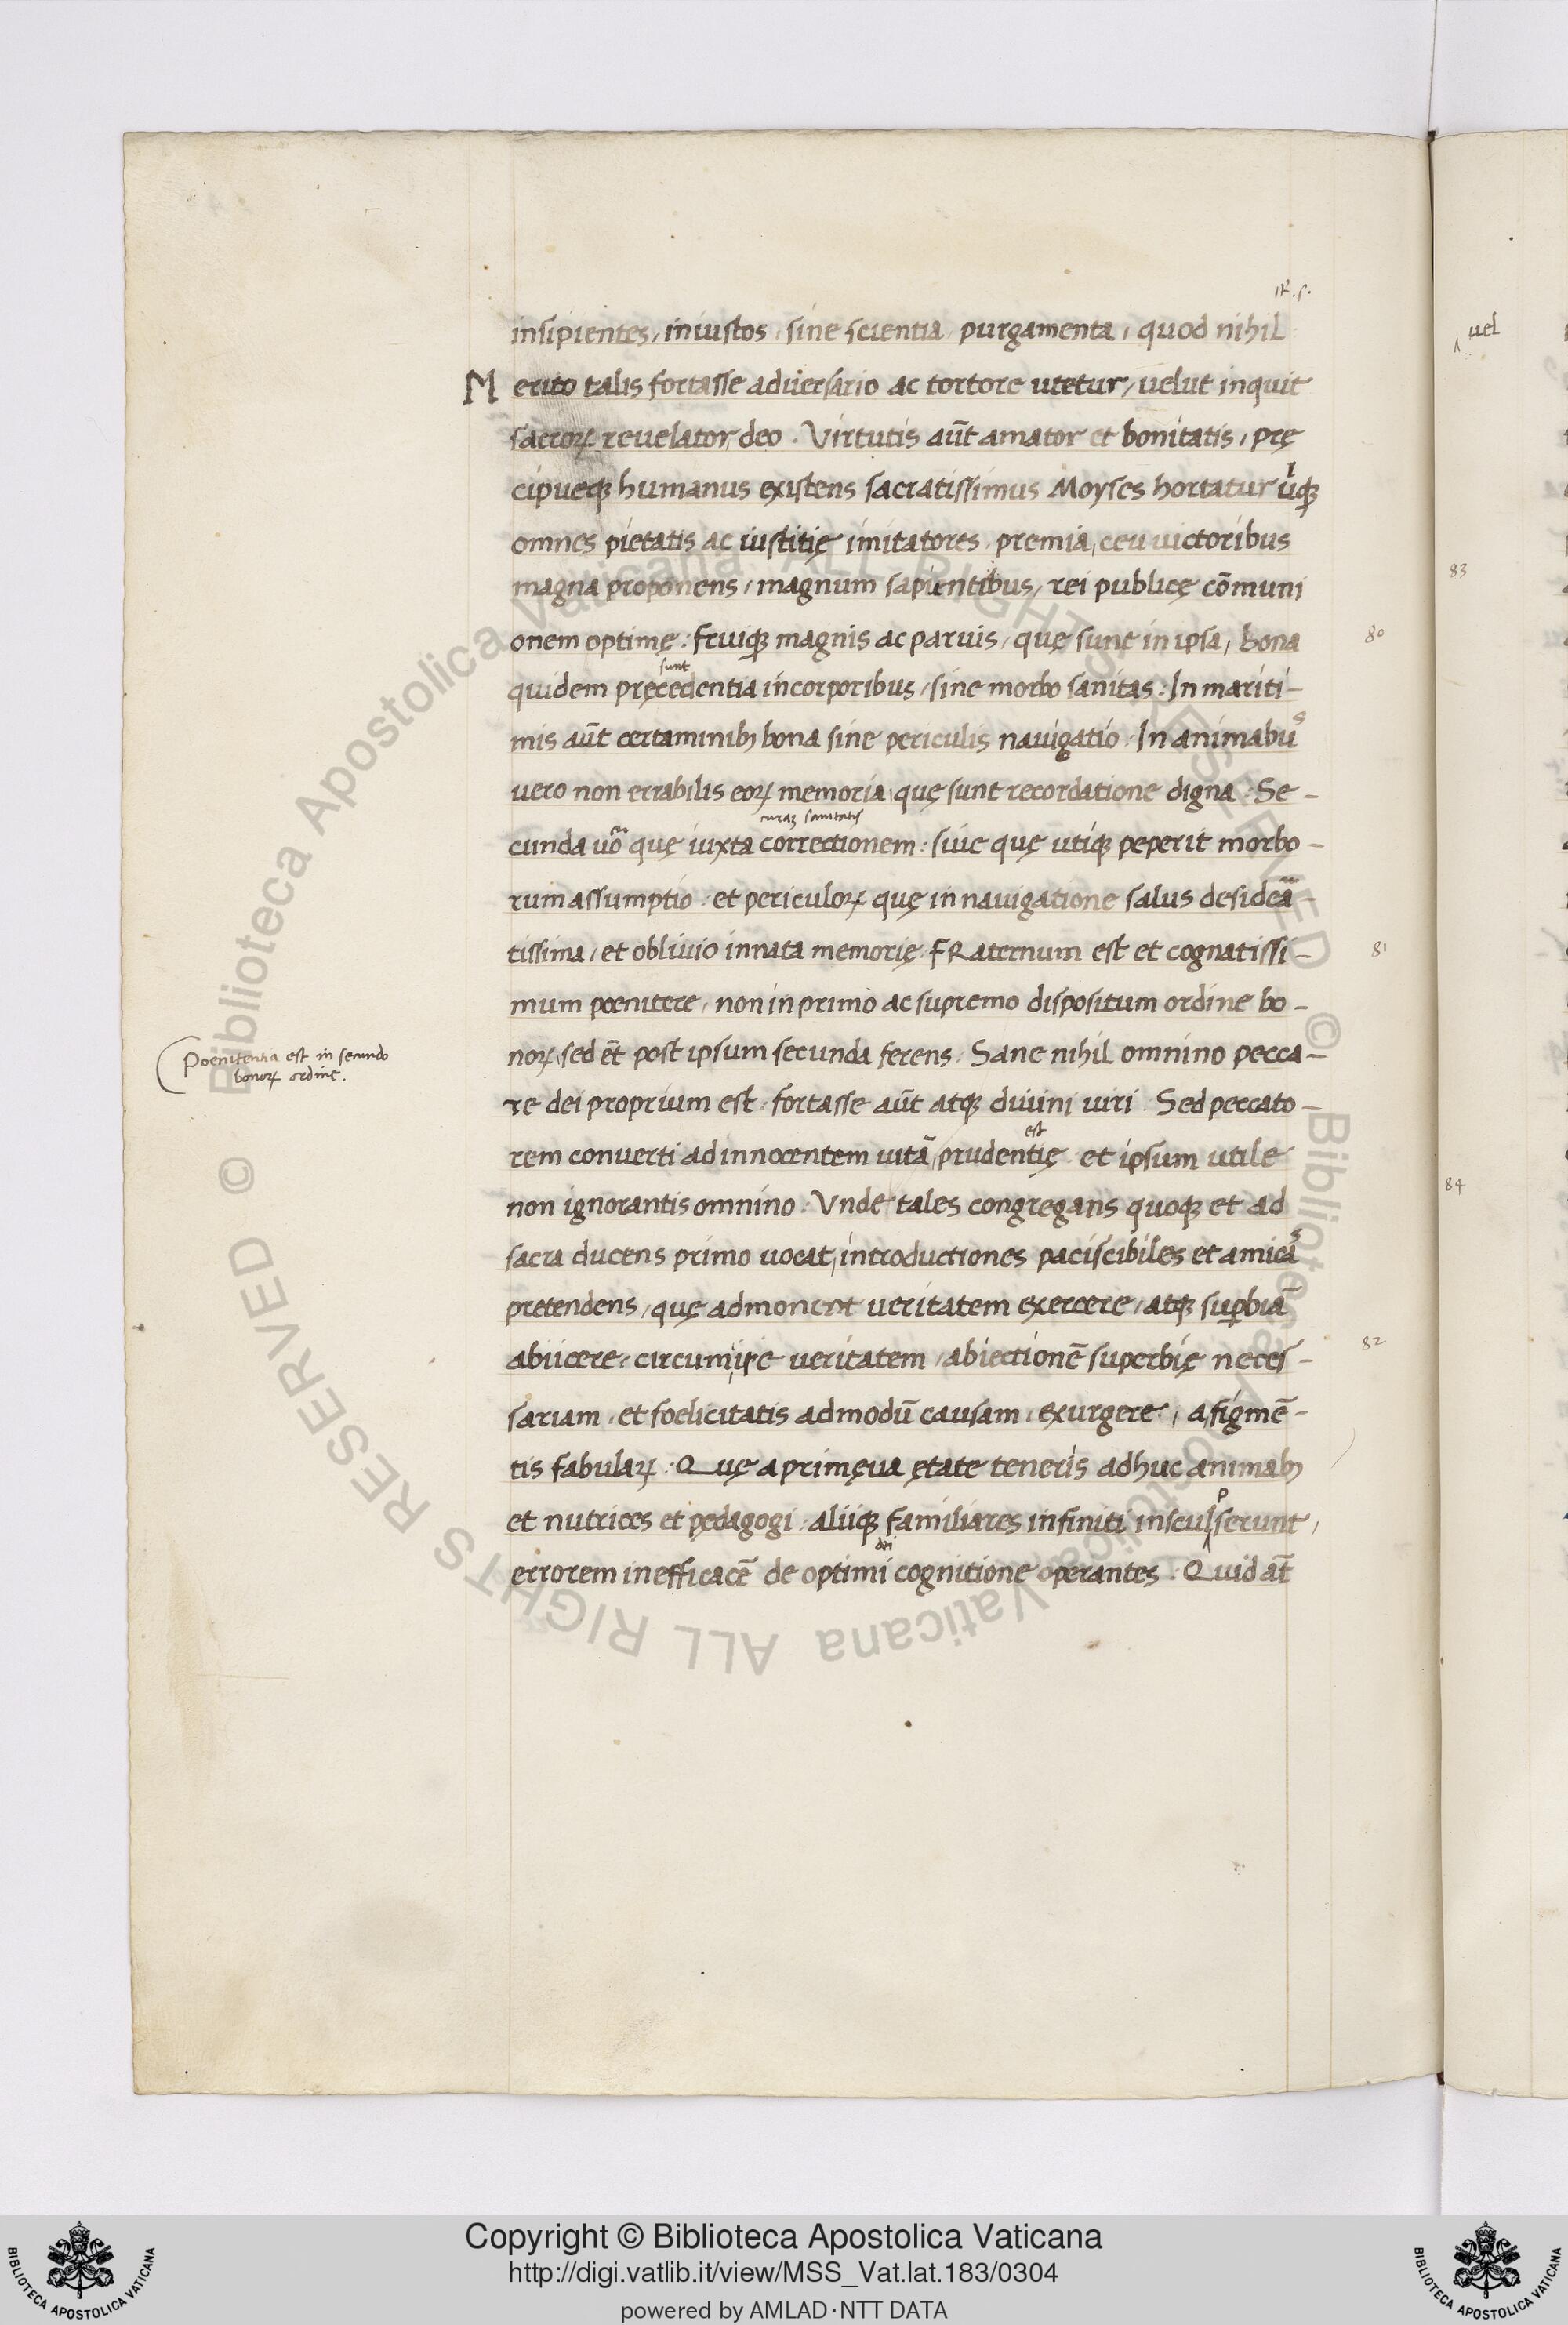 R. s.
insipientes, iniustos, sine scientia, purgamenta, quod nihil
Merito talis fortasse aduersario ac tortore utetur, uelut inquit
sacroꝝ reuelator, deo. Virtutis aūt amator et bonitatis, prę
cipueqꝫ humanus existens sacratissimus Moyses hortatur
omnes pietatis ac iustitię imitatores, premia, ceu uictoribus
magna proponens, magnum sapientibus, rei publicę cōmuni
onem optimę: fruiqꝫ magnis ac paruis, quę sunt in ipsa, bona
80
sunt
quidem pręcedentia in corporibus, sine morbo sanitas: In mariti-
mis aūt certaminibꝫ bona sine periculis nauigatio. In animabus
uero non errabilis eoꝝ memoria, quę sunt recordatione digna. Se-
sanitatis
cunda uō quę iuxta correctionem: siue quę utiqꝫ peperit morbo-
rum assumptio: et periculoꝝ quę in nauigatione salus desideā-
tissima, et obliuio innata memorię. FRaternum est et cognatissi-
81
mum poenitere, non in primo ac supremo dispositum ordine bo-
noꝝ, sed ēt post ipsum secunda ferens. Sane nihil omnino pecca-
Poenitentia est in secundo
bonoꝝ ordine.
re dei proprium est: fortasse aūt atqꝫ diuini uiri. Sed peccato-
est
rem conuerti ad innocentem uitā, prudentię et ipsum utile
non ignorantis omnino. Vnde tales congregans quoqꝫ et ad
sacra ducens primo uocat, introductiones paciscibiles et amicas
pretendens, quę admonent ueritatem exercere, atqꝫ suꝑbiā
abiicere, circumire ueritatem, abiectionē superbię neces-
82
sariam, et foelicitatis admodū causam, exurgere, a figmē-
tis fabulaꝝ. Quę a primęua ętate teneris adhuc animabꝫ
et nutrices et pędagogi: aliiqꝫ familiares infiniti insculpserunt,
dei
errorem inefficacē de optimi cognitione operantes. Quid āt
uel
83
84
© Biblioteca Apostolica Vaticana ALL RIGHTS RESERVED © Biblioteca Apostolica Vaticana ALL RIGHTS RESERVED
Copyright © Biblioteca Apostolica Vaticana
http://digi.vatlib.it/view/MSS_Vat.lat.183/0304
powered by AMLAD·NTT DATA
BIBLIOTECA APOSTOLICA VATICANA
BIBLIOTECA APOSTOLICA VATICANA